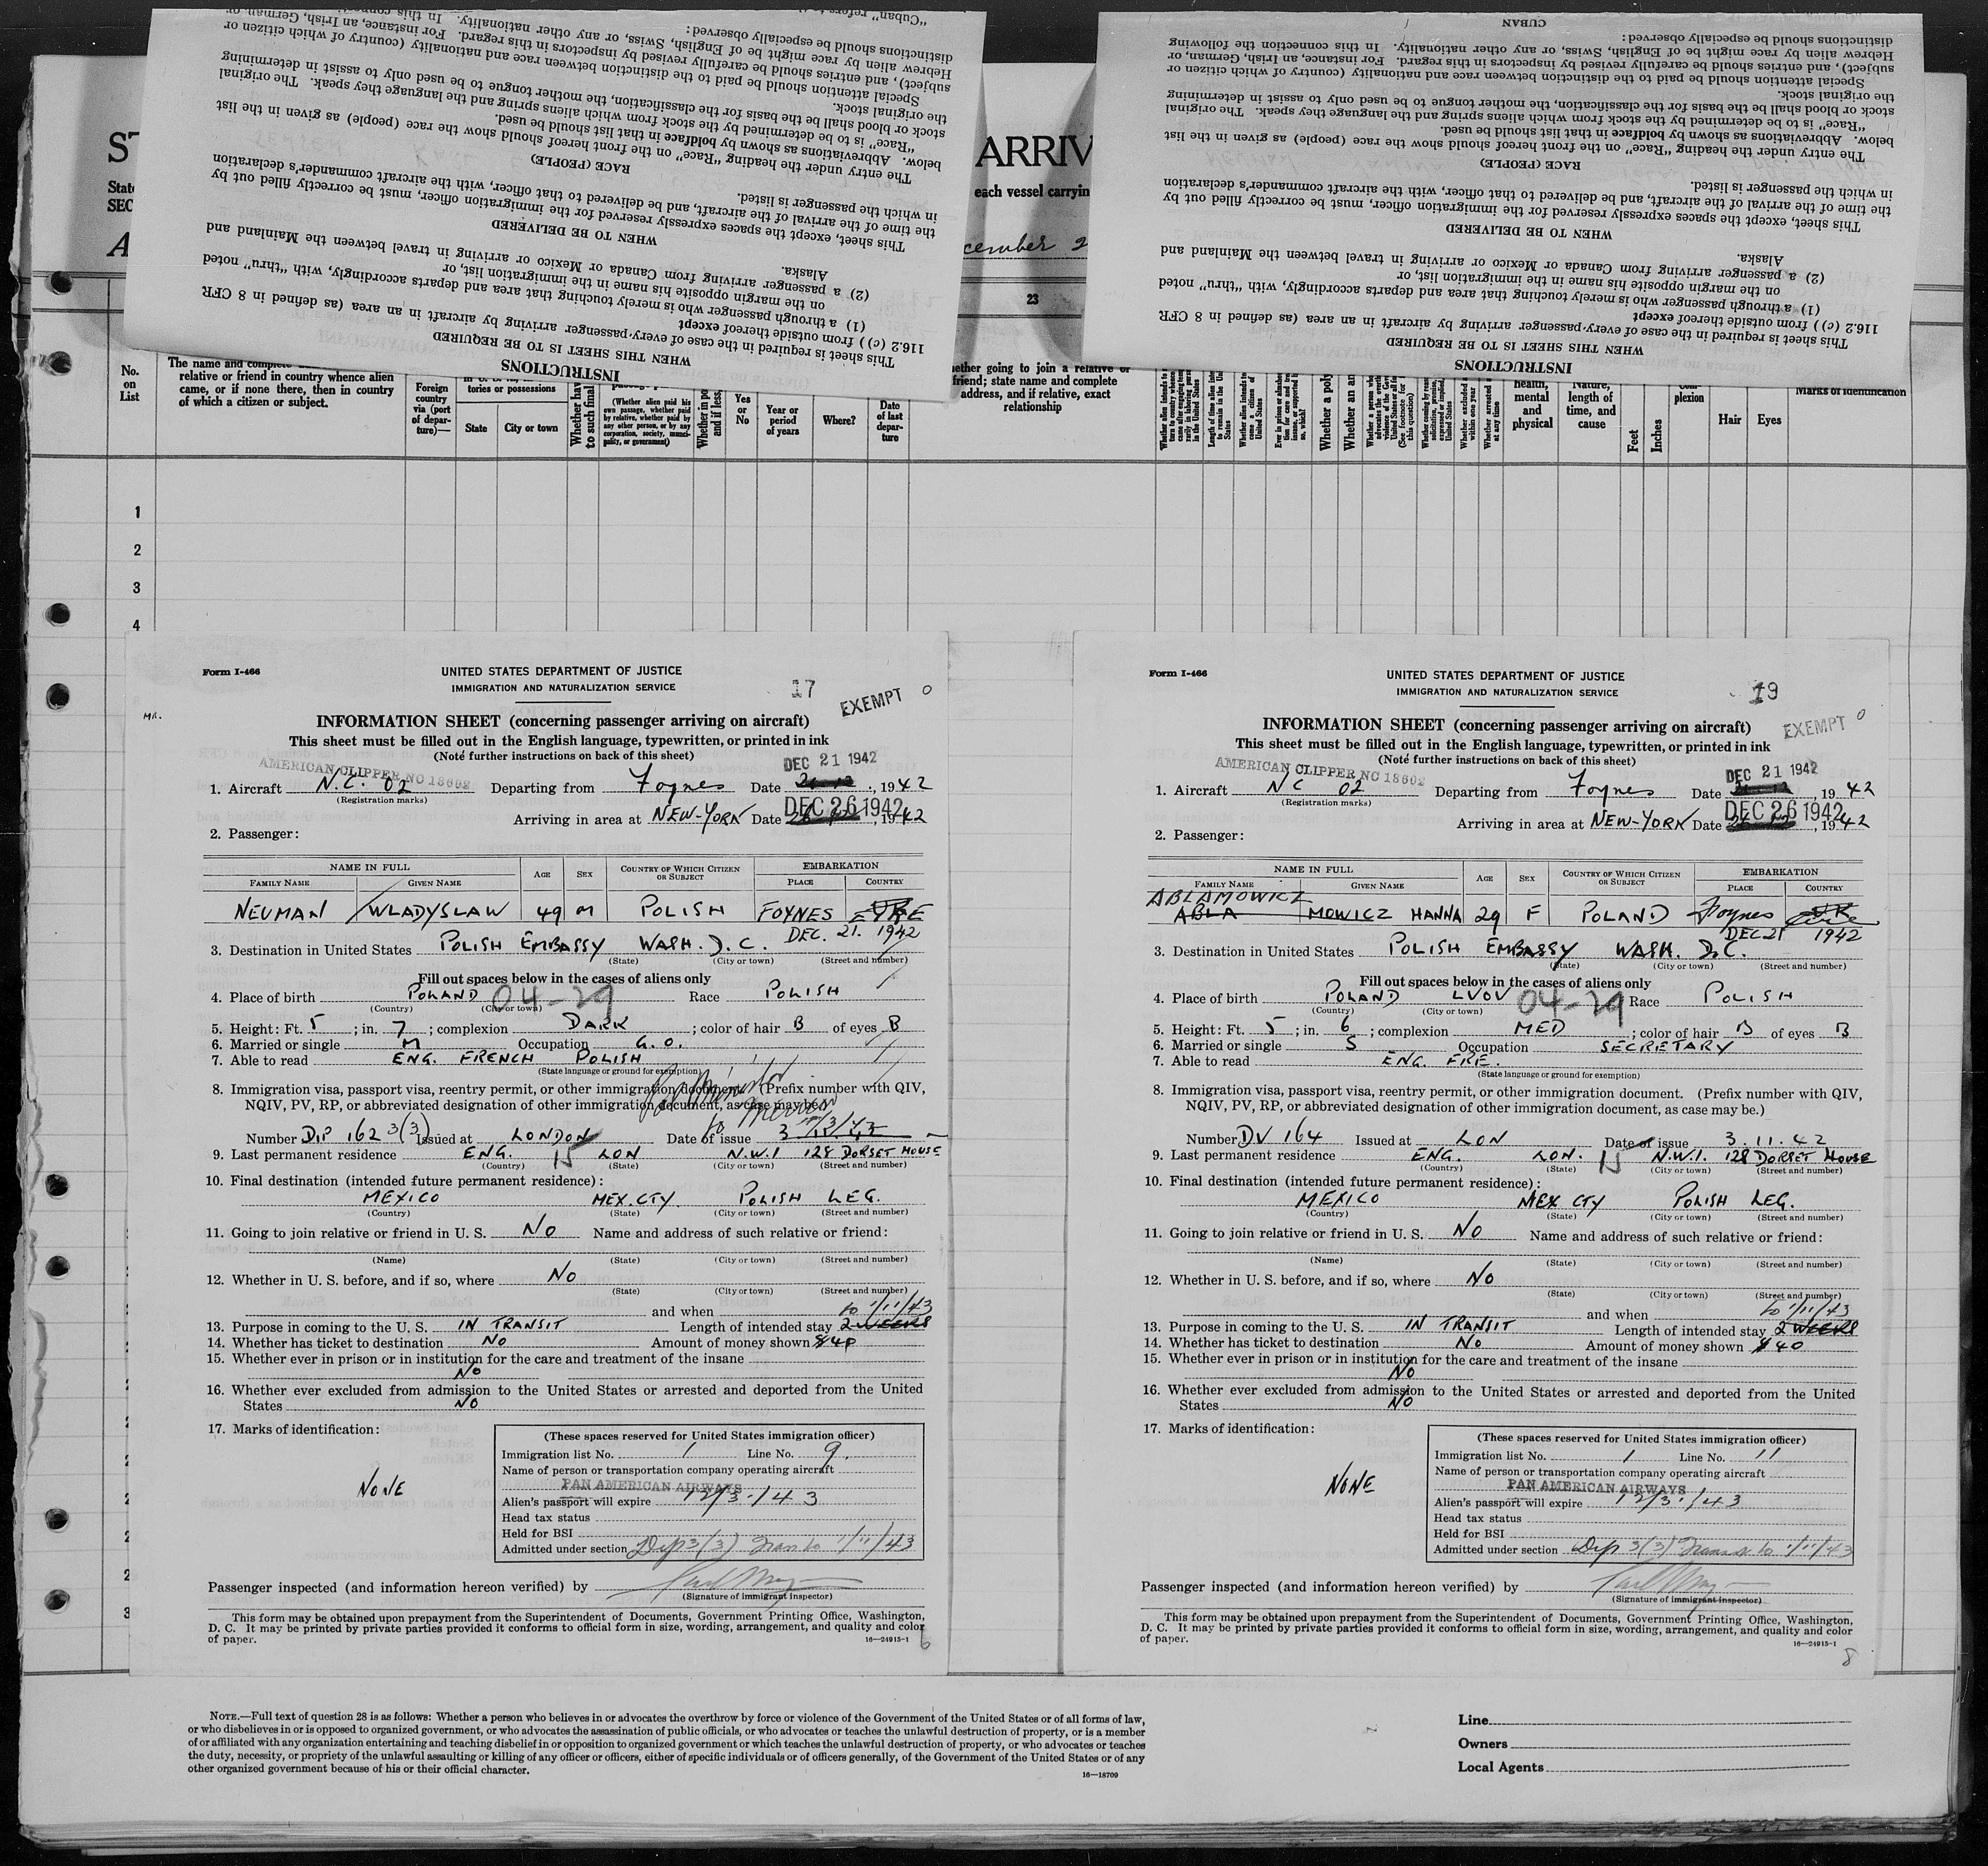 INSTRUCTIONS
WHEN THIS SHEET IS TO BE REQUIRED
This sheet is required in the case of every passenger arriving by aircraft in an area (as defined in 8 CFR
116.2 (c)) from outside thereof except
(1) a through passenger who is merely touching that area and departs accordingly, with "thru" noted
on the margin opposite his name in the immigration list, or
(2) a passenger arriving from Canada or Mexico or arriving in travel between the Mainland and
Alaska.
WHEN TO BE DELIVERED
This sheet, except the spaces expressly reserved for the immigration officer, must be correctly filled out by
the time of the arrival of the aircraft, and be delivered to that officer, with the aircraft commander's declaration
in which the passenger is listed.
RACE (PEOPLE)
The entry under the heading "Race" on the front hereof should show the race (people) as given in the list
below. Abbreviations as shown by boldface in that list should be used.
"Race" is to be determined by the stock from which aliens spring and the language they speak. The original
stock or blood shall be the basis for the classification, the mother tongue to be used only to assist in determining
the original stock.
Special attention should be paid to the distinction between race and nationality (country of which citizen or
subject), and entries should be carefully revised by inspectors in this regard. For instance, an Irish, German, or
Hebrew alien by race might be of English, Swiss, or any other nationality. In this connection
distinctions should be especially observed:
"Cuban" refers to
INSTRUCTIONS
WHEN THIS SHEET IS TO BE REQUIRED
This sheet is required in the case of every passenger arriving by aircraft in an area (as defined in 8 CFR
116.2 (c)) from outside thereof except
(1) a through passenger who is merely touching that area and departs accordingly, with "thru" noted
on the margin opposite his name in the immigration list, or
(2) a passenger arriving from Canada or Mexico or arriving in travel between the Mainland and
Alaska.
WHEN TO BE DELIVERED
This sheet, except the spaces expressly reserved for the immigration officer, must be correctly filled out by
the time of the arrival of the aircraft, and be delivered to that officer, with the aircraft commander's declaration
in which the passenger is listed.
RACE (PEOPLE)
The entry under the heading "Race" on the front hereof should show the race (people) as given in the list
below. Abbreviations as shown by boldface in that list should be used.
"Race" is to be determined by the stock from which aliens spring and the language they speak. The original
stock or blood shall be the basis for the classification, the mother tongue to be used only to assist in determining
the original stock.
Special attention should be paid to the distinction between race and nationality (country of which citizen or
subject), and entries should be carefully revised by inspectors in this regard. For instance, an Irish, German, or
Hebrew alien by race might be of English, Swiss, or any other nationality. In this connection the following
distinctions should be especially observed:
CUBAN
ARRIV
each vessel carryin
SEC
23
No. on List
The name and complete
relative or friend in country whence alien
came, or if none there, then in country
of which a citizen or subject.
Foreign country via (port of departure)—
tories or possessions
State
City or town
(Whether alien paid his own passage, whether paid by relative, whether paid by any other person, or by any corporation, society, municipality, or government)
Yes or No
Year or period of years
Where?
Date of last departure
friend; state name and complete
address, and if relative, exact
relationship
health, mental and physical
Nature, length of time, and cause
Feet
Inches
plexion
Hair
Eyes
Marks of identification
1
2
3
4
Form I-466
UNITED STATES DEPARTMENT OF JUSTICE
IMMIGRATION AND NATURALIZATION SERVICE
17
EXEMPT
MR.
INFORMATION SHEET (concerning passenger arriving on aircraft)
This sheet must be filled out in the English language, typewritten, or printed in ink
(Note further instructions on back of this sheet)
AMERICAN CLIPPER NC 18602
DEC 21 1942
1. Aircraft N.C. 02 Departing from Foynes Date , 1942
(Registration marks)
DEC 26 1942
Arriving in area at NEW-YORK Date , 1942
2. Passenger:
NAME IN FULL
FAMILY NAME GIVEN NAME
AGE
SEX
COUNTRY OF WHICH CITIZEN OR SUBJECT
EMBARKATION
PLACE COUNTRY
NEUMAN WLADYSLAW 49 M POLISH FOYNES EIRE
DEC. 21. 1942
3. Destination in United States POLISH EMBASSY WASH. D.C.
(State) (City or town) (Street and number)
Fill out spaces below in the cases of aliens only
4. Place of birth POLAND 04-29 Race POLISH
(Country) (City or town)
5. Height: Ft. 5; in. 7; complexion DARK; color of hair B of eyes B
6. Married or single M Occupation G.O.
7. Able to read ENG. FRENCH POLISH
(State language or ground for exemption)
8. Immigration visa, passport visa, reentry permit, or other immigration document. (Prefix number with QIV,
NQIV, PV, RP, or abbreviated designation of other immigration document, as case may be.)
Number DIP 162 3(3) Issued at LONDON Date of issue
9. Last permanent residence ENG. 15 LON N.W.1 128 DORSET HOUSE
(Country) (State) (City or town) (Street and number)
10. Final destination (intended future permanent residence):
MEXICO MEX. CTY. POLISH LEG.
(Country) (State) (City or town) (Street and number)
11. Going to join relative or friend in U. S. NO Name and address of such relative or friend:
(Name) (State) (City or town) (Street and number)
12. Whether in U. S. before, and if so, where NO
(State) (City or town) (Street and number)
and when
to 1/11/43
13. Purpose in coming to the U. S. IN TRANSIT Length of intended stay 2 WEEKS
14. Whether has ticket to destination NO Amount of money shown $40
15. Whether ever in prison or in institution for the care and treatment of the insane
NO
16. Whether ever excluded from admission to the United States or arrested and deported from the United
States NO
17. Marks of identification:
NONE
(These spaces reserved for United States immigration officer)
Immigration list No. 1 Line No. 9.
Name of person or transportation company operating aircraft
PAN AMERICAN AIRWAYS
Alien's passport will expire 12/3-/43
Head tax status
Held for BSI
Admitted under section Dip 3(3) Trans to 1/11/43
Passenger inspected (and information hereon verified) by
(Signature of immigrant inspector)
This form may be obtained upon prepayment from the Superintendent of Documents, Government Printing Office, Washington,
D. C. It may be printed by private parties provided it conforms to official form in size, wording, arrangement, and quality and color
of paper.
16—24915-1
6
Form I-466
UNITED STATES DEPARTMENT OF JUSTICE
IMMIGRATION AND NATURALIZATION SERVICE
19
EXEMPT
INFORMATION SHEET (concerning passenger arriving on aircraft)
This sheet must be filled out in the English language, typewritten, or printed in ink
(Note further instructions on back of this sheet)
AMERICAN CLIPPER NC 18602
DEC 21 1942
1. Aircraft NC 02 Departing from Foynes Date , 1942
(Registration marks)
DEC 26 1942
Arriving in area at NEW-YORK Date , 1942
2. Passenger:
NAME IN FULL
FAMILY NAME GIVEN NAME
AGE
SEX
COUNTRY OF WHICH CITIZEN OR SUBJECT
EMBARKATION
PLACE COUNTRY
ABLAMOWICZ
ABLA MOWICZ HANNA 29 F POLAND Foynes Eire
DEC 21 1942
3. Destination in United States POLISH EMBASSY WASH. D.C.
(State) (City or town) (Street and number)
Fill out spaces below in the cases of aliens only
4. Place of birth POLAND LVOV 04-29 Race POLISH
(Country) (City or town)
5. Height: Ft. 5; in. 6; complexion MED; color of hair B of eyes B
6. Married or single S Occupation SECRETARY
7. Able to read ENG. FRE.
(State language or ground for exemption)
8. Immigration visa, passport visa, reentry permit, or other immigration document. (Prefix number with QIV,
NQIV, PV, RP, or abbreviated designation of other immigration document, as case may be.)
Number DV 164 Issued at LON Date of issue 3.11.42
9. Last permanent residence ENG. LON. 15 N.W.1. 128 DORSET HOUSE
(Country) (State) (City or town) (Street and number)
10. Final destination (intended future permanent residence):
MEXICO MEX CTY POLISH LEG.
(Country) (State) (City or town) (Street and number)
11. Going to join relative or friend in U. S. NO Name and address of such relative or friend:
(Name) (State) (City or town) (Street and number)
12. Whether in U. S. before, and if so, where NO
(State) (City or town) (Street and number)
and when
to 1/11/43
13. Purpose in coming to the U. S. IN TRANSIT Length of intended stay 2 WEEKS
14. Whether has ticket to destination NO Amount of money shown $40
15. Whether ever in prison or in institution for the care and treatment of the insane
NO
16. Whether ever excluded from admission to the United States or arrested and deported from the United
States NO
17. Marks of identification:
NONE
(These spaces reserved for United States immigration officer)
Immigration list No. 1 Line No. 11
Name of person or transportation company operating aircraft
PAN AMERICAN AIRWAYS
Alien's passport will expire 12/3·/43
Head tax status
Held for BSI
Admitted under section Dip 3(3) Transit to 1/11/43
Passenger inspected (and information hereon verified) by
(Signature of immigrant inspector)
This form may be obtained upon prepayment from the Superintendent of Documents, Government Printing Office, Washington,
D. C. It may be printed by private parties provided it conforms to official form in size, wording, arrangement, and quality and color
of paper.
16—24915-1
8
NOTE.—Full text of question 28 is as follows: Whether a person who believes in or advocates the overthrow by force or violence of the Government of the United States or of all forms of law,
or who disbelieves in or is opposed to organized government, or who advocates the assassination of public officials, or who advocates or teaches the unlawful destruction of property, or is a member
of or affiliated with any organization entertaining and teaching disbelief in or opposition to organized government or which teaches the unlawful destruction of property, or who advocates or teaches
the duty, necessity, or propriety of the unlawful assaulting or killing of any officer or officers, either of specific individuals or of officers generally, of the Government of the United States or of any
other organized government because of his or their official character.
16—18709
Line
Owners
Local Agents